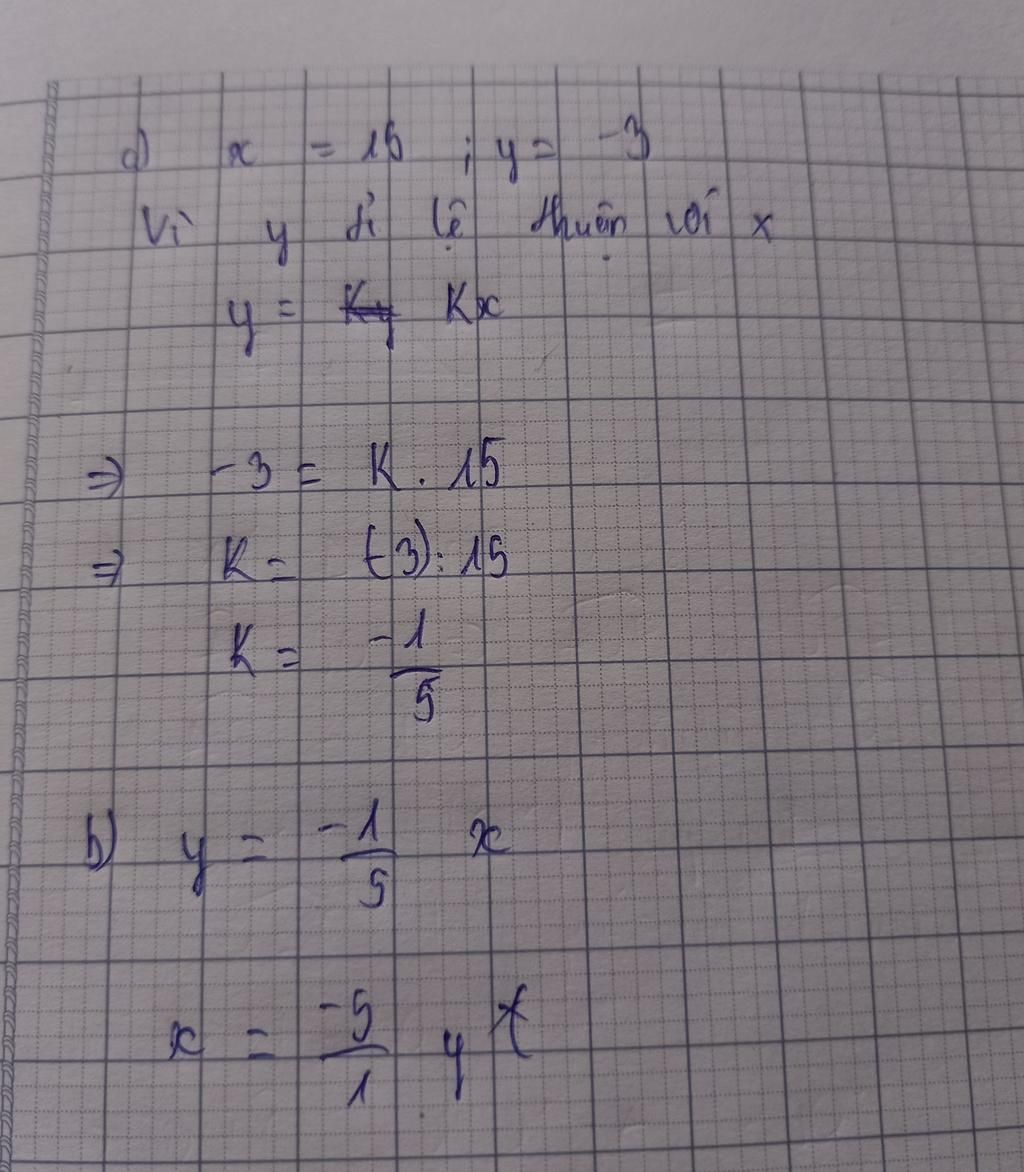 a) x = 15 ; y = -3
Vì y tỉ lệ thuận với x
y = Ky Kx
=> -3 = K . 15
=> K = (-3) : 15
K = -1/5
b) y = -1/5 x
x = -5/1 y